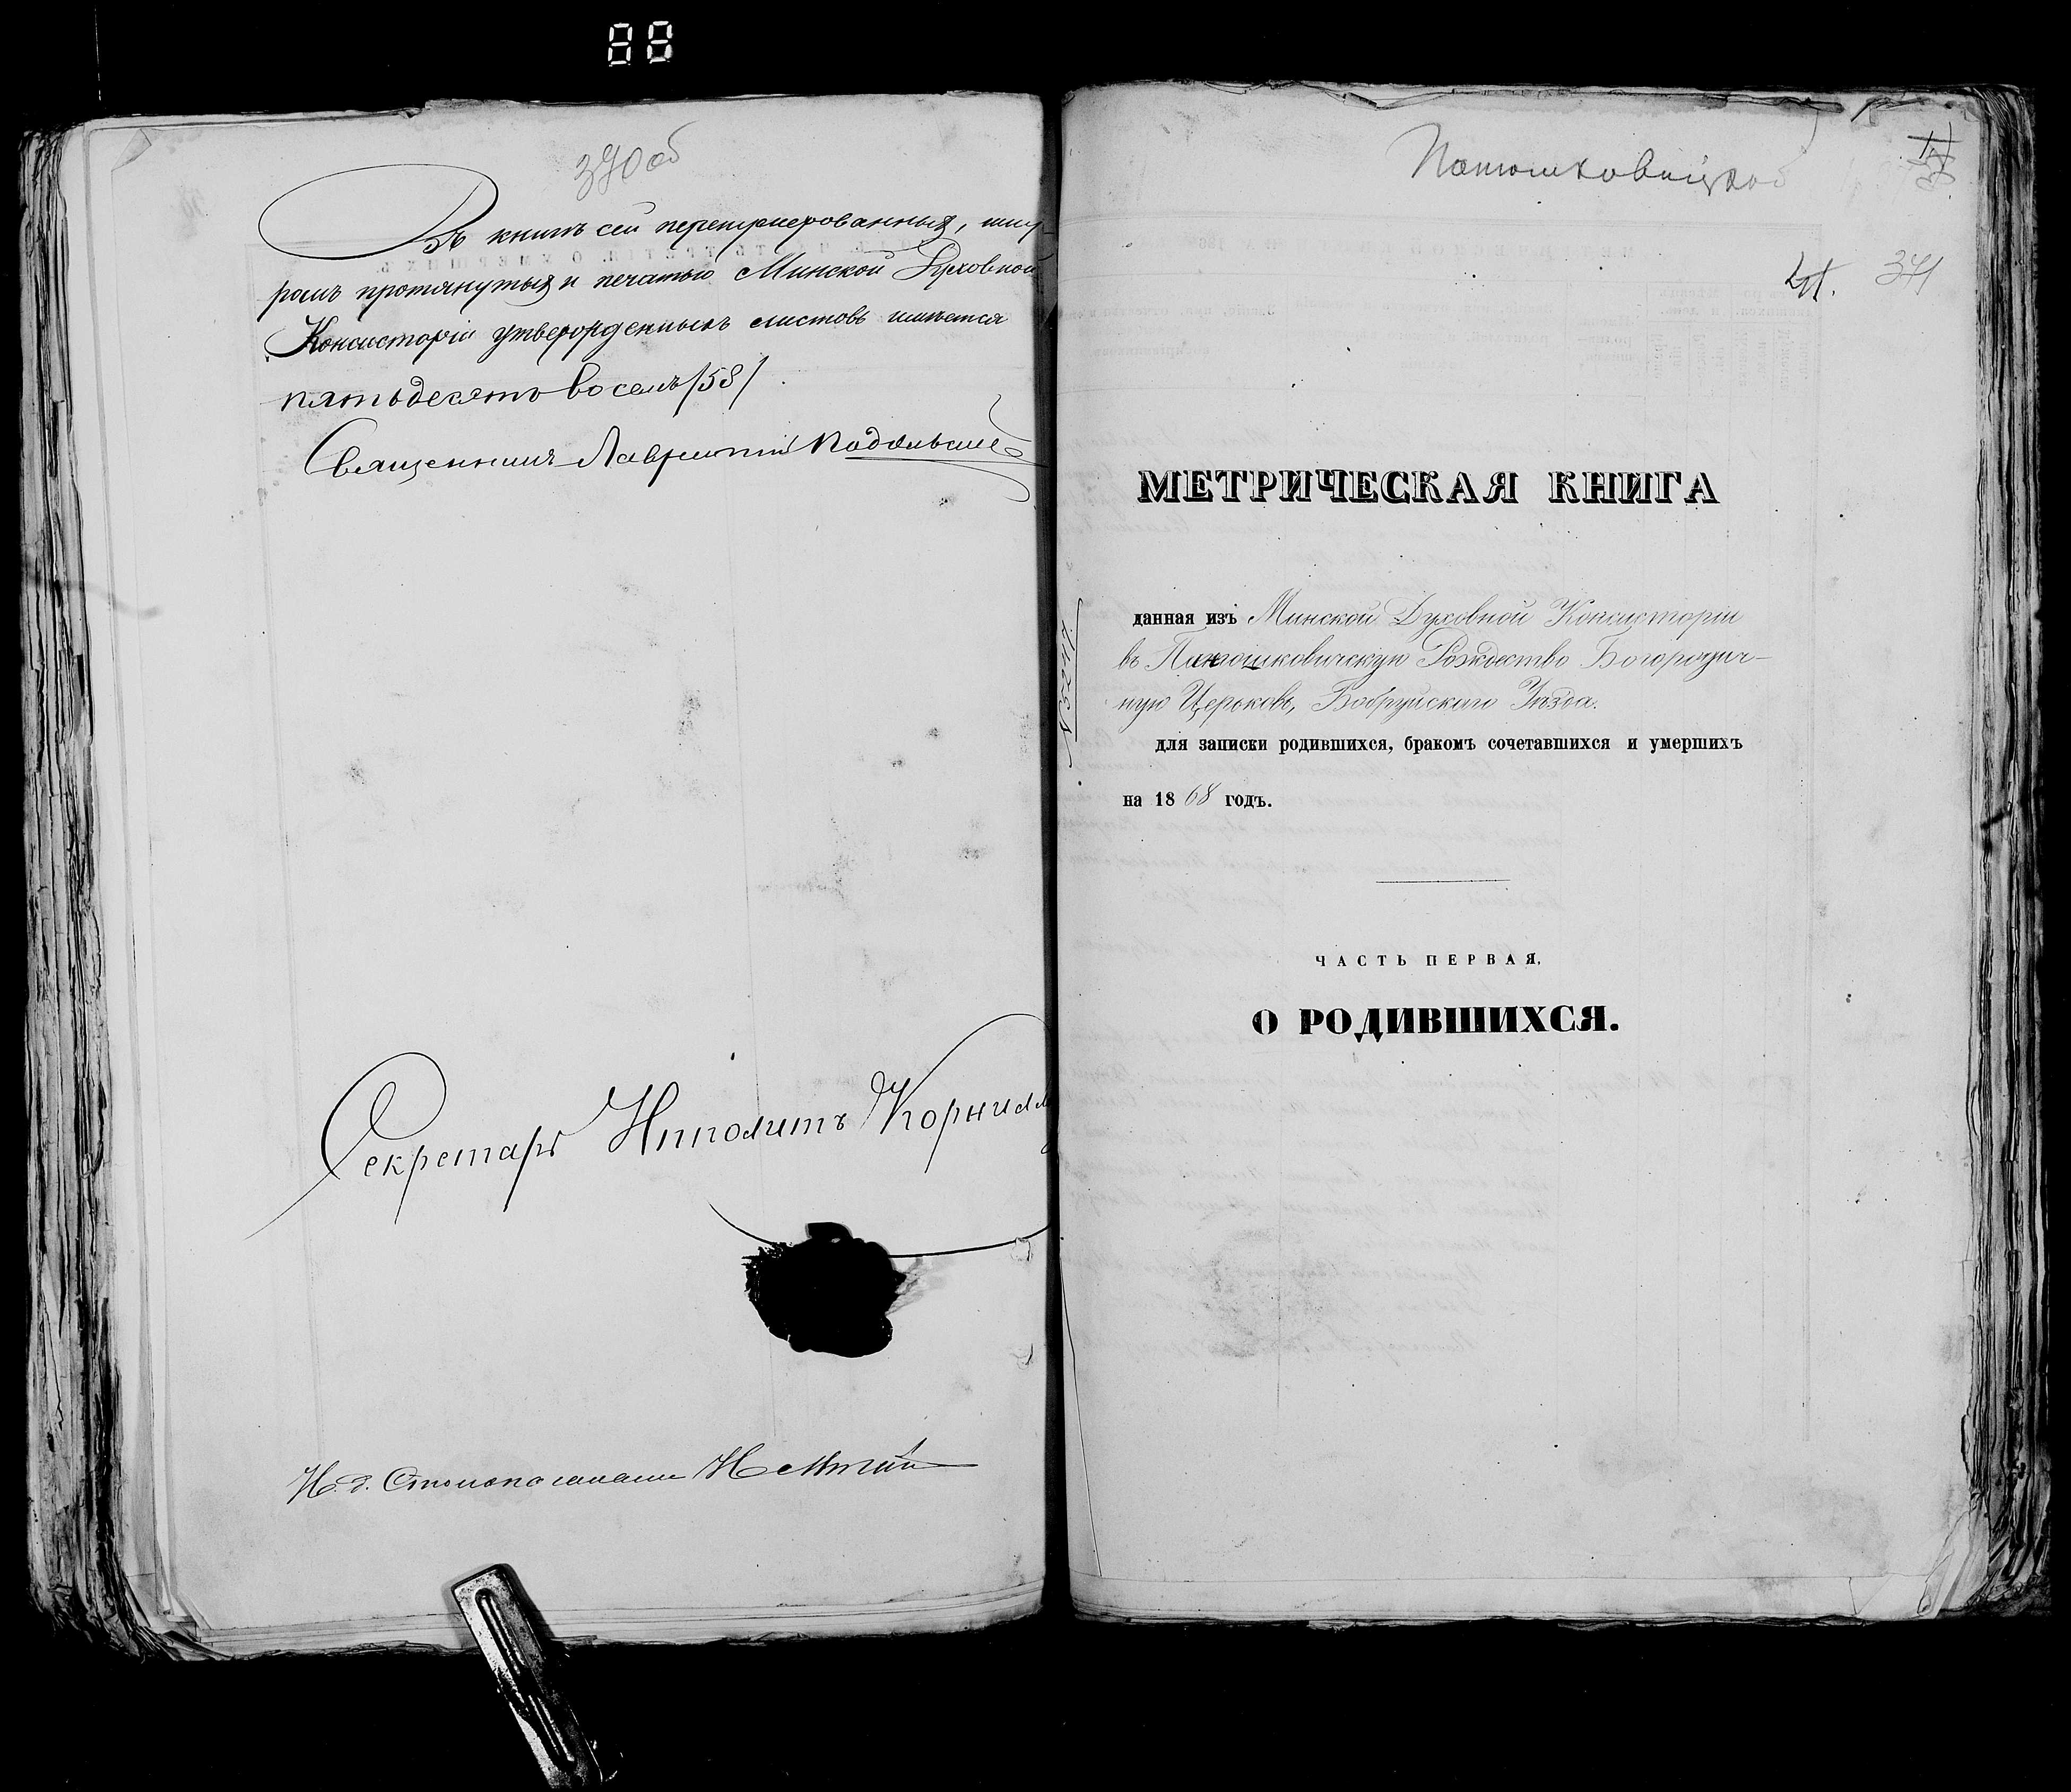 88
390 об
Въ книгѣ сей перенумерованныхъ, шну-
ромъ протянутыхъ и печатью Минской Духовной
Консисторіи утвержденныхъ листовъ имѣется
пятьдесятъ восемь /58/
Священникъ Лаврентій
Секретарь Ипполитъ Корнил
И. д. Столоначальника
371
МЕТРИЧЕСКАЯ КНИГА
данная изъ Минской Духовной Консисторіи
въ Пянюшковичскую Рождество Богородич-
ную Церковь, Бобруйскаго Уѣзда.
для записки родившихся, бракомъ сочетавшихся и умершихъ
на 1868 годъ.
ЧАСТЬ ПЕРВАЯ.
О РОДИВШИХСЯ.